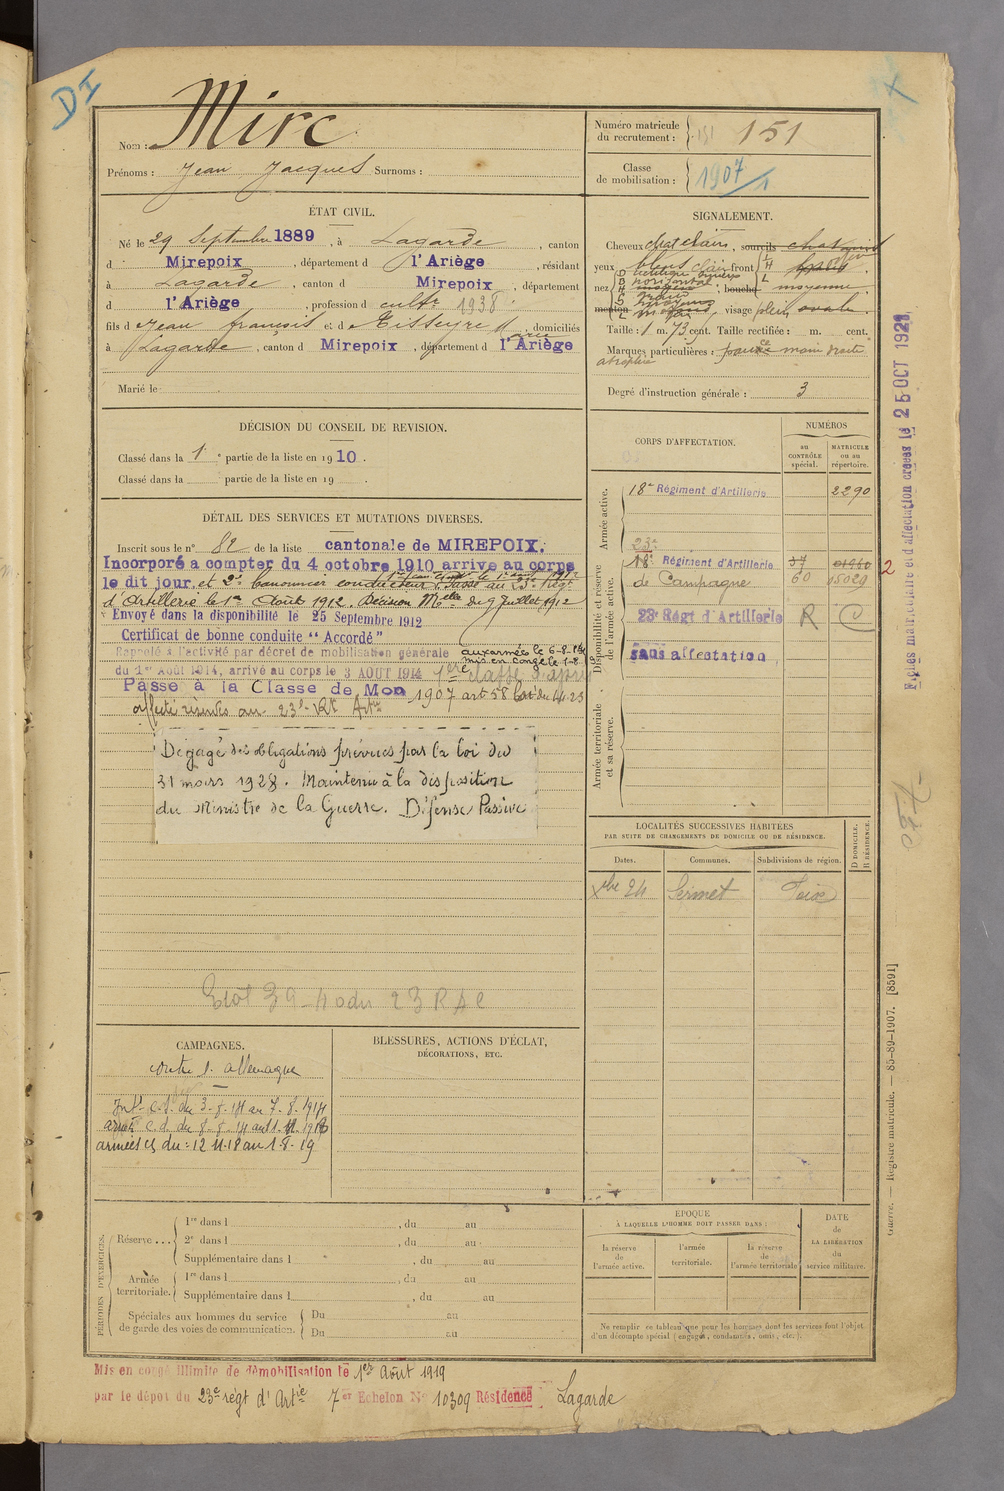 DI
Nom : Mirc
Prénoms : Jean Jacques Surnoms :
Numéro matricule
du recrutement : 151
Classe
de mobilisation : 1907/1
ÉTAT CIVIL.
Né le 29 Septembre 1889, à Lagarde, canton
d Mirepoix, département d l'Ariège, résidant
à Lagarde, canton d Mirepoix, département
d l'Ariège, profession d cultr 1938.
fils d Jean françois et d Eisseyre Marie, domiciliés
à Lagarde, canton d Mirepoix, département d l'Ariège
Marié le
SIGNALEMENT.
Cheveux chat clairs, sourcils
yeux bleus clair front
nez bouche moyenne
menton visage plein, ovale.
Taille : 1 m. 73 cent. Taille rectifiée : m. cent.
Marques particulières : pouce main droite
atrophié
Degré d'instruction générale : 3
DÉCISION DU CONSEIL DE REVISION.
Classé dans la 1e partie de la liste en 1910.
Classé dans la partie de la liste en 19 .
DÉTAIL DES SERVICES ET MUTATIONS DIVERSES.
Inscrit sous le n° 82 de la liste cantonale de MIREPOIX.
Incorporé à compter du 4 octobre 1910 arrive au corps
le dit jour, et 2e canonnier conducteur. Passé au 23e Régt
d'Artillerie le 1er Août 1912. Décision Melle du 9 Juillet 1912
Envoyé dans la disponibilité le 25 Septembre 1912
Certificat de bonne conduite "Accordé"
Rappelé à l'activité par décret de mobilisation générale aux armées le 6-8-14
du 1er Août 1914, arrivé au corps le 3 AOUT 1914 mis en congé le 1-8-19
Passé à la Classe de Mob 1907 art 58 loi du 1-4-23
affecté réserves au 23e Rt Artie
Dégagé des obligations prévues par la loi du
31 mars 1928. Maintenu à la disposition
du Ministre de la Guerre. Défense Passive
CORPS D'AFFECTATION.
NUMÉROS
au
CONTRÔLE
spécial.
MATRICULE
ou au
répertoire.
Armée active.
18e Régiment d'Artillerie 2290
Disponibilité et réserve
de l'armée active.
23e
18e Régiment d'Artillerie 37
de Campagne 60 15029
2
23e Régt d'Artillerie R
sans affectation
Armée territoriale
et sa réserve.
Fiches matriculaire et d'affectation créées le 25 OCT 1921
LOCALITÉS SUCCESSIVES HABITÉES
PAR SUITE DE CHANGEMENTS DE DOMICILE OU DE RÉSIDENCE.
D DOMICILE.
R RÉSIDENCE.
Dates. Communes. Subdivisions de région.
Xbre 24 Sermet Foix
CAMPAGNES.
contre l'allemagne
Intr c.d. du 3-8-14 au 7-8-1914
armée c.d. du 8-8-14 au 11-11-1918
armées CS du : 12-11-18 au 1-8-19
BLESSURES, ACTIONS D'ÉCLAT,
DÉCORATIONS, ETC.
PÉRIODES D'EXERCICES.
Réserve... 1re dans l , du au
2e dans l , du au
Supplémentaire dans l , du au
Armée
territoriale. 1re dans l , du au
Supplémentaire dans l , du au
Spéciales aux hommes du service
de garde des voies de communication. Du au
Du au
EPOQUE
À LAQUELLE L'HOMME DOIT PASSER DANS :
la réserve
de
l'armée active.
l'armée
territoriale.
la réserve
de
l'armée territoriale
DATE
de
LA LIBÉRATION
du
service militaire.
Ne remplir se tableau que pour les hommes dont les services font l'objet
d'un décompte spécial (engagés, condamnés, omis, etc.).
Guerre. — Registre matricule. — 85-89-1907. [8591]
Mis en congé illimité de démobilisation le 1er Août 1919
par le dépot du 23e régt d'Artie 7e Echelon N° 10309 Résidence Lagarde